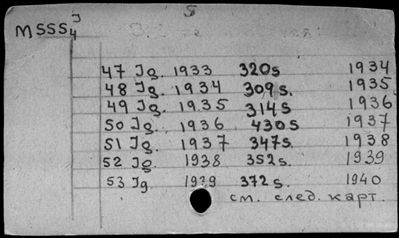 MSSS4 J
47 Jg. 1933 320s 1934
48 Jg. 1934 309s. 1935
49 Jg. 1935 314s 1936
50 Jg. 1936 430s 1937
51 Jg. 1937 347s. 1938
52 Jg 1938 352s. 1939
53 Jg. 1939 372s. 1940
см. след. карт.